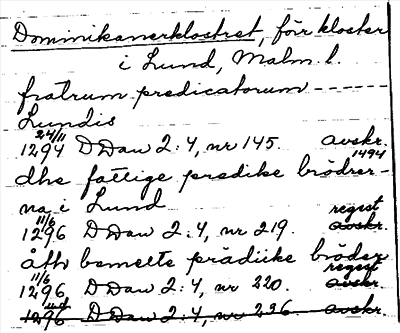 Dominikanerklostret, förr kloster
i Lund, Malm. l.
fratrum predicatorum ------
Lundis
24/11
1294 D Dan 2:4, nr 145. avskr.
1494
dhe fattige predike brödrer-
na i Lund
11/6 regest
1296 D Dan 2:4, nr 219. avskr.
åth bemelte prädiike bröder
11/6 regest
1296 D Dan 2:4, nr 220. avskr.
u.d.
1296 D Dan 2:4, nr 236. avskr.